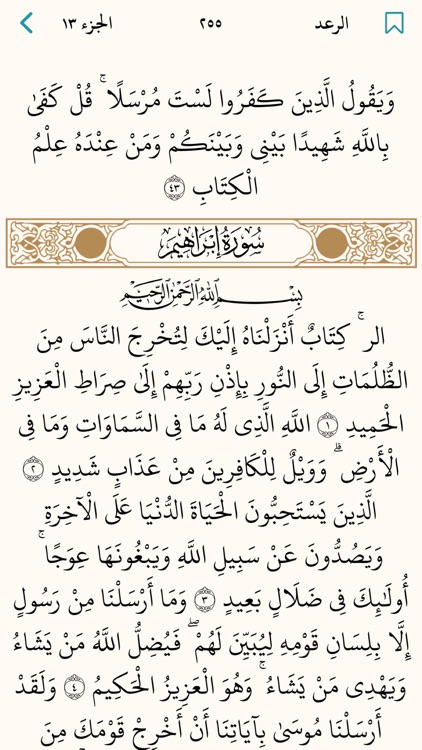 الرعد ٢٥٥ الجزء ١٣
وَيَقُولُ الَّذِينَ كَفَرُوا لَسْتَ مُرْسَلًا ۚ قُلْ كَفَىٰ
بِاللَّهِ شَهِيدًا بَيْنِي وَبَيْنَكُمْ وَمَنْ عِنْدَهُ عِلْمُ
الْكِتَابِ ٤٣
سُورَةُ إِبْرَاهِيمَ
بِسْمِ اللَّهِ الرَّحْمَٰنِ الرَّحِيمِ
الر ۚ كِتَابٌ أَنْزَلْنَاهُ إِلَيْكَ لِتُخْرِجَ النَّاسَ مِنَ
الظُّلُمَاتِ إِلَى النُّورِ بِإِذْنِ رَبِّهِمْ إِلَىٰ صِرَاطِ الْعَزِيزِ
الْحَمِيدِ ١ اللَّهِ الَّذِي لَهُ مَا فِي السَّمَاوَاتِ وَمَا فِي
الْأَرْضِ ۗ وَوَيْلٌ لِلْكَافِرِينَ مِنْ عَذَابٍ شَدِيدٍ ٢
الَّذِينَ يَسْتَحِبُّونَ الْحَيَاةَ الدُّنْيَا عَلَى الْآخِرَةِ
وَيَصُدُّونَ عَنْ سَبِيلِ اللَّهِ وَيَبْغُونَهَا عِوَجًا ۚ
أُولَٰئِكَ فِي ضَلَالٍ بَعِيدٍ ٣ وَمَا أَرْسَلْنَا مِنْ رَسُولٍ
إِلَّا بِلِسَانِ قَوْمِهِ لِيُبَيِّنَ لَهُمْ ۖ فَيُضِلُّ اللَّهُ مَنْ يَشَاءُ
وَيَهْدِي مَنْ يَشَاءُ ۚ وَهُوَ الْعَزِيزُ الْحَكِيمُ ٤ وَلَقَدْ
أَرْسَلْنَا مُوسَىٰ بِآيَاتِنَا أَنْ أَخْرِجْ قَوْمَكَ مِنَ